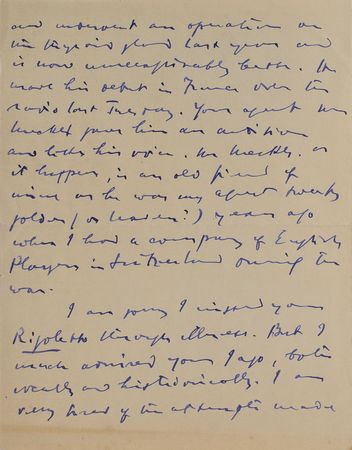 and underwent an operation on
his thyroid gland last year and
is now unrecognisably better. He
made his debut in France over the
radio last Tuesday. Your agent Mr
gave him an audition
and likes his voice. Mr as
it happens, is an old friend of
mine as he was my agent twenty
golden (or leaden?) years ago
when I had a company of English
Players in Switzerland during the
war.
I am sorry I missed your
Rigoletto through illness. But I
much admired your Iago, both
vocally and histrionically. I am
very tired of the attempts made